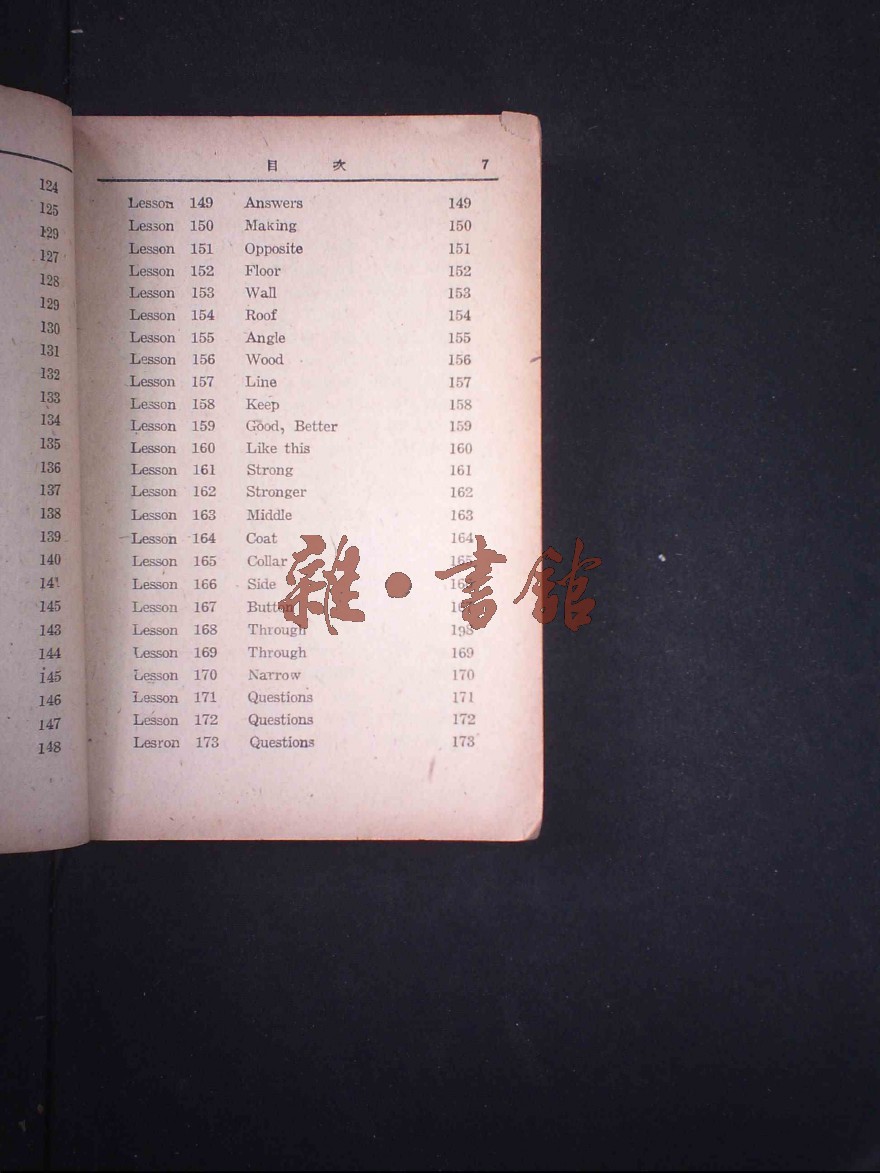 124
125
129
127
128
129
130
131
132
133
134
135
136
137
138
139
140
141
145
143
144
145
146
147
148
目 次 7
Lesson 149 Answers 149
Lesson 150 Making 150
Lesson 151 Opposite 151
Lesson 152 Floor 152
Lesson 153 Wall 153
Lesson 154 Roof 154
Lesson 155 Angle 155
Lesson 156 Wood 156
Lesson 157 Line 157
Lesson 158 Keep 158
Lesson 159 Good, Better 159
Lesson 160 Like this 160
Lesson 161 Strong 161
Lesson 162 Stronger 162
Lesson 163 Middle 163
Lesson 164 Coat 164
Lesson 165 Collar 165
Lesson 166 Side
Lesson 167 Button
Lesson 168 Through 198
Lesson 169 Through 169
Lesson 170 Narrow 170
Lesson 171 Questions 171
Lesson 172 Questions 172
Lesron 173 Questions 173
雜·書館